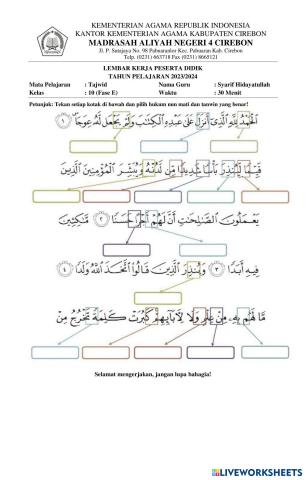 KEMENTERIAN AGAMA REPUBLIK INDONESIA
KANTOR KEMENTERIAN AGAMA KABUPATEN CIREBON
MADRASAH ALIYAH NEGERI 4 CIREBON
Jl. P. Sutajaya No. 98 Pabuaranlor Kec. Pabuaran Kab. Cirebon
Telp. (0231) 663718 Fax (0231) 8665121
LEMBAR KERJA PESERTA DIDIK
TAHUN PELAJARAN 2023/2024
Mata Pelajaran : Tajwid Nama Guru : Syarif Hidayatullah
Kelas : 10 (Fase E) Waktu : 30 Menit
Petunjuk: Tekan setiap kotak di bawah dan pilih hukum nun mati dan tanwin yang benar!
الْحَمْدُ لِلَّهِ الَّذِي أَنزَلَ عَلَى عَبْدِهِ الْكِتَابَ وَلَمْ يَجْعَل لَّهُ عِوَجًا ۝١
قَيِّمًا لِّيُنذِرَ بَأْسًا شَدِيدًا مِّن لَّدُنْهُ وَيُبَشِّرَ الْمُؤْمِنِينَ الَّذِينَ
يَعْمَلُونَ الصَّالِحَاتِ أَنَّ لَهُمْ أَجْرًا حَسَنًا ۝٢ مَّاكِثِينَ
فِيهِ أَبَدًا ۝٣ وَيُنذِرَ الَّذِينَ قَالُوا اتَّخَذَ اللَّهُ وَلَدًا ۝٤
مَّا لَهُم بِهِ مِنْ عِلْمٍ وَلَا لِآبَائِهِمْ كَبُرَتْ كَلِمَةً تَخْرُجُ مِنْ
Selamat mengerjakan, jangan lupa bahagia!
LIVEWORKSHEETS